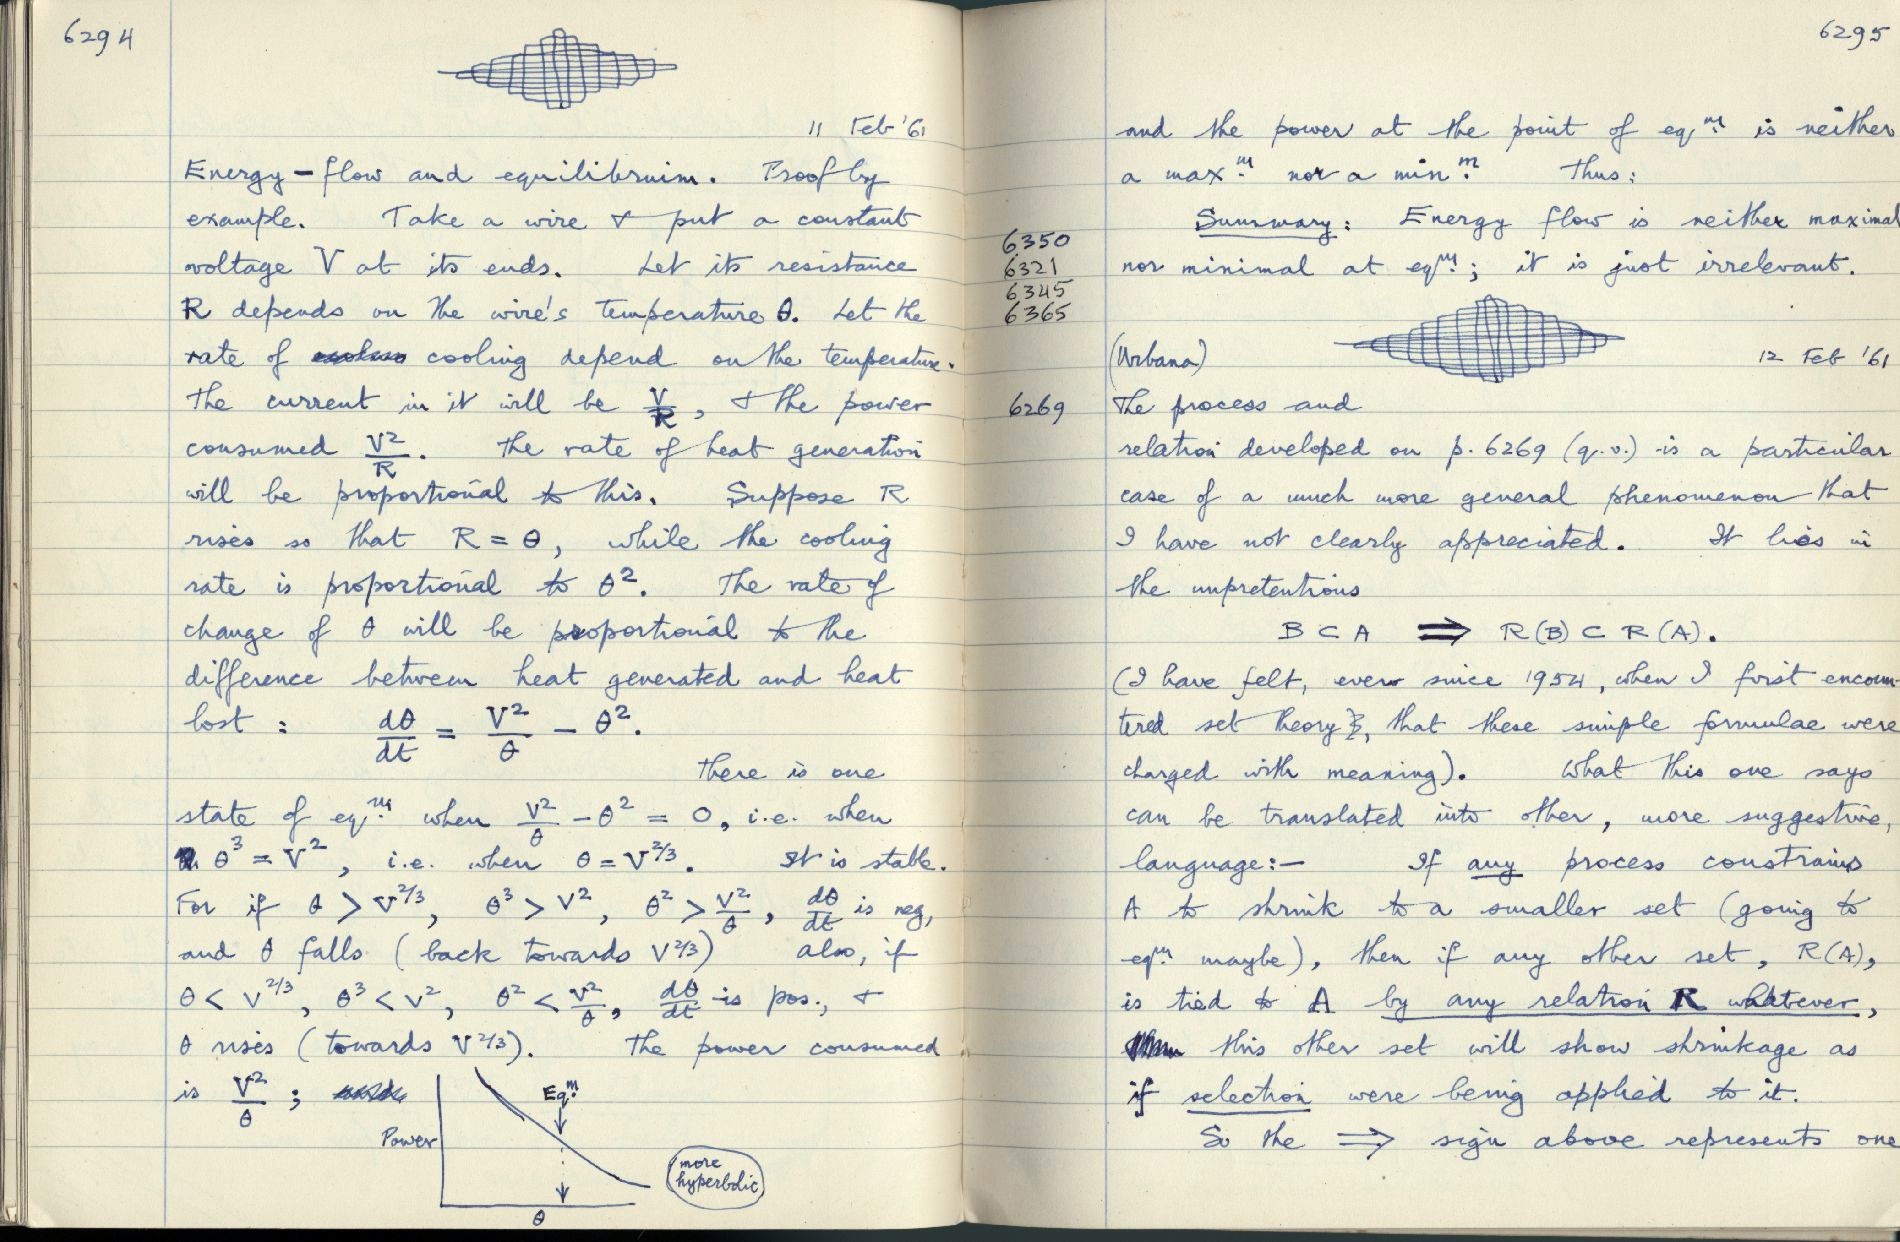 6294
11 Feb '61
Energy-flow and equilibrium. Proof by
example. Take a wire & put a constant
voltage V at its ends. Let its resistance
R depends on the wire's temperature θ. Let the
rate of cooling depend on the temperature.
The current in it will be V/R, & the power
consumed V²/R. The rate of heat generation
will be proportional to this. Suppose R
rises so that R = θ, while the cooling
rate is proportional to θ². The rate of
change of θ will be proportional to the
difference between heat generated and heat
lost: dθ/dt = V²/θ − θ².
There is one
state of eqᵐ. when V²/θ − θ² = 0, i.e. when
θ³ = V², i.e. when θ = V^2/3. It is stable.
For if θ > V^2/3, θ³ > V², θ² > V²/θ, dθ/dt is neg,
and θ falls (back towards V^2/3) also, if
θ < V^2/3, θ³ < V², θ² < V²/θ, dθ/dt is pos., &
θ rises (towards V^2/3). The power consumed
is V²/θ;
Eqᵐ.
Power
more
hyperbolic
θ
6295
and the power at the point of eqᵐ. is neither
a maxᵐ. nor a minᵐ. Thus:
Summary: Energy flow is neither maximal
6350
nor minimal at eqᵐ.; it is just irrelevant.
6321
6345
6365
(Urbana)
12 Feb '61
6269
The process and
relation developed on p. 6269 (q.v.) is a particular
case of a much more general phenomenon that
I have not clearly appreciated. It lies in
the unpretentious
B ⊂ A ⟹ R(B) ⊂ R(A).
(I have felt, ever since 1954, when I first encoun-
tered set theory, that these simple formulae were
charged with meaning). What this one says
can be translated into other, more suggestive,
language:— If any process constrains
A to shrink to a smaller set (going to
eqᵐ. maybe), then if any other set, R(A),
is tied to A by any relation R whatever,
this other set will show shrinkage as
if selection were being applied to it.
So the ⟹ sign above represents one